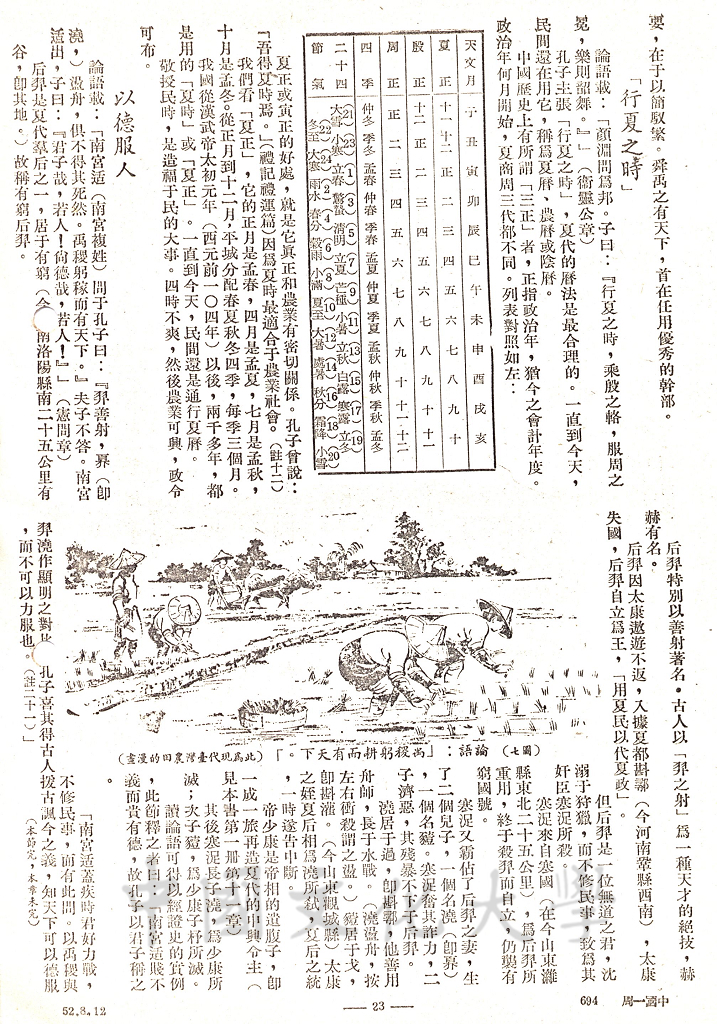 要，在于以簡馭繁。舜禹之有天下，首在任用優秀的幹部。
「行夏之時」
論語載：「顏淵問爲邦。子曰：『行夏之時，乘殷之輅，服周之
冕，樂則韶舞。』」（衞靈公章）
孔子主張「行夏之時」，夏代的曆法是最合理的。一直到今天，
民間還在用它，稱爲夏曆、農曆或陰曆。
中國歷史上有所謂「三正」者，正指政治年，猶今之會計年度。
政治年何月開始，夏商周三代都不同。列表對照如左：
天文月 子 丑 寅 卯 辰 巳 午 未 申 酉 戌 亥
夏正 十一 十二 正 二 三 四 五 六 七 八 九 十
殷正 十二 正 二 三 四 五 六 七 八 九 十 十一
周正 正 二 三 四 五 六 七 八 九 十 十一 十二
四季 仲冬 季冬 孟春 仲春 季春 孟夏 仲夏 季夏 孟秋 仲秋 季秋 孟冬
二十四節氣 大雪(21) 冬至(22) 小寒(23) 大寒(24) 立春(1) 雨水(2) 驚蟄(3) 春分(4) 清明(5) 穀雨(6) 立夏(7) 小滿(8) 芒種(9) 夏至(10) 小暑(11) 大暑(12) 立秋(13) 處暑(14) 白露(15) 秋分(16) 寒露(17) 霜降(18) 立冬(19) 小雪(20)
夏正或寅正的好處，就是它真正和農業有密切關係。孔子曾說：
「吾得夏時焉。」（禮記禮運篇）因爲夏時最適合于農業社會。（註十二）
我們看「夏正」，它的正月是孟春，四月是孟夏，七月是孟秋，
十月是孟冬。從正月到十二月，平均分配春夏秋冬四季，每季三個月。
我國從漢武帝太初元年（西元前一〇四年）以後，兩千多年，都
是用的「夏時」或「夏正」。一直到今天，民間還是通行夏曆。
敬授民時，是造福于民的大事。四時不爽，然後農業可興，政令
可布。
以德服人
論語載：「南宮适（南宮複姓）問于孔子曰：『羿善射，奡（卽
澆，）盪舟，俱不得其死然。禹稷躬稼而有天下。』夫子不答。南宮
适出，子曰：『君子哉，若人！尚德哉，若人！』」（憲問章）
后羿是夏代羣后之一，居于有窮（今 南洛陽縣南二十五公里有
谷，卽其地。）故稱有窮后羿。
后羿特別以善射著名。古人以「羿之射」爲一種天才的絕技，赫
赫有名。
后羿因太康遨遊不返，入據夏都斟鄩（今河南鞏縣西南），太康
失國，后羿自立爲王，「用夏民以代夏政」。
但后羿是一位無道之君，沈
溺于狩獵，而不修民事，致爲其
奸臣寒浞所殺
寒浞來自寒國（在今山東濰
縣東北二十五公里），爲后羿所
重用，終于殺羿而自立，仍襲有
窮國號。
寒浞又霸佔了后羿之妻，生
了二個兒子，一個名澆（卽奡）
，一個名豷。寒浞奮其詐力，二
子濟惡，其殘暴不下于后羿。
澆居于過，卽斟鄩，他善用
舟師，長于水戰。（澆盪舟，按
左右衝殺謂之盪。）豷居于戈，
卽斟灌。（今山東觀城縣）太康
之姪夏后相爲澆所弑，夏后之統
，一時遂告中斷。
帝少康是帝相的遺腹子，卽
一成一旅再造夏代的中興令主（
見本書第一册第十一章）
其後寒浞長子澆，爲少康所
滅；次子豷，爲少康子杼所滅。
讀論語可得以經證史的實例
，此節釋之者曰：「南宮适賤不
義而貴有德，故孔子以君子稱之
。
「南宮适蓋疾時君好力戰，
不修民事，而有此問。以禹稷與
羿澆作顯明之對比 孔子喜其得古人援古諷今之義，知天下可以德服
，而不可以力服也。（註二十一）」
（本節完，本章未完）
（圖七）論語：「禹稷躬耕而有天下。」（此爲現代臺灣農田的漫畫）
中國文化大學
52.8.12
— 23 —
694 中國一周